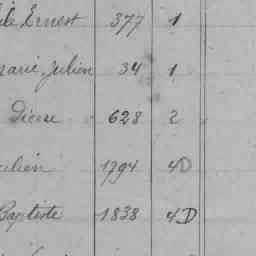 Ernest 377 1
Marie Julien 34 1
628 2
Julien 1794 4D
Baptiste 1838 4D